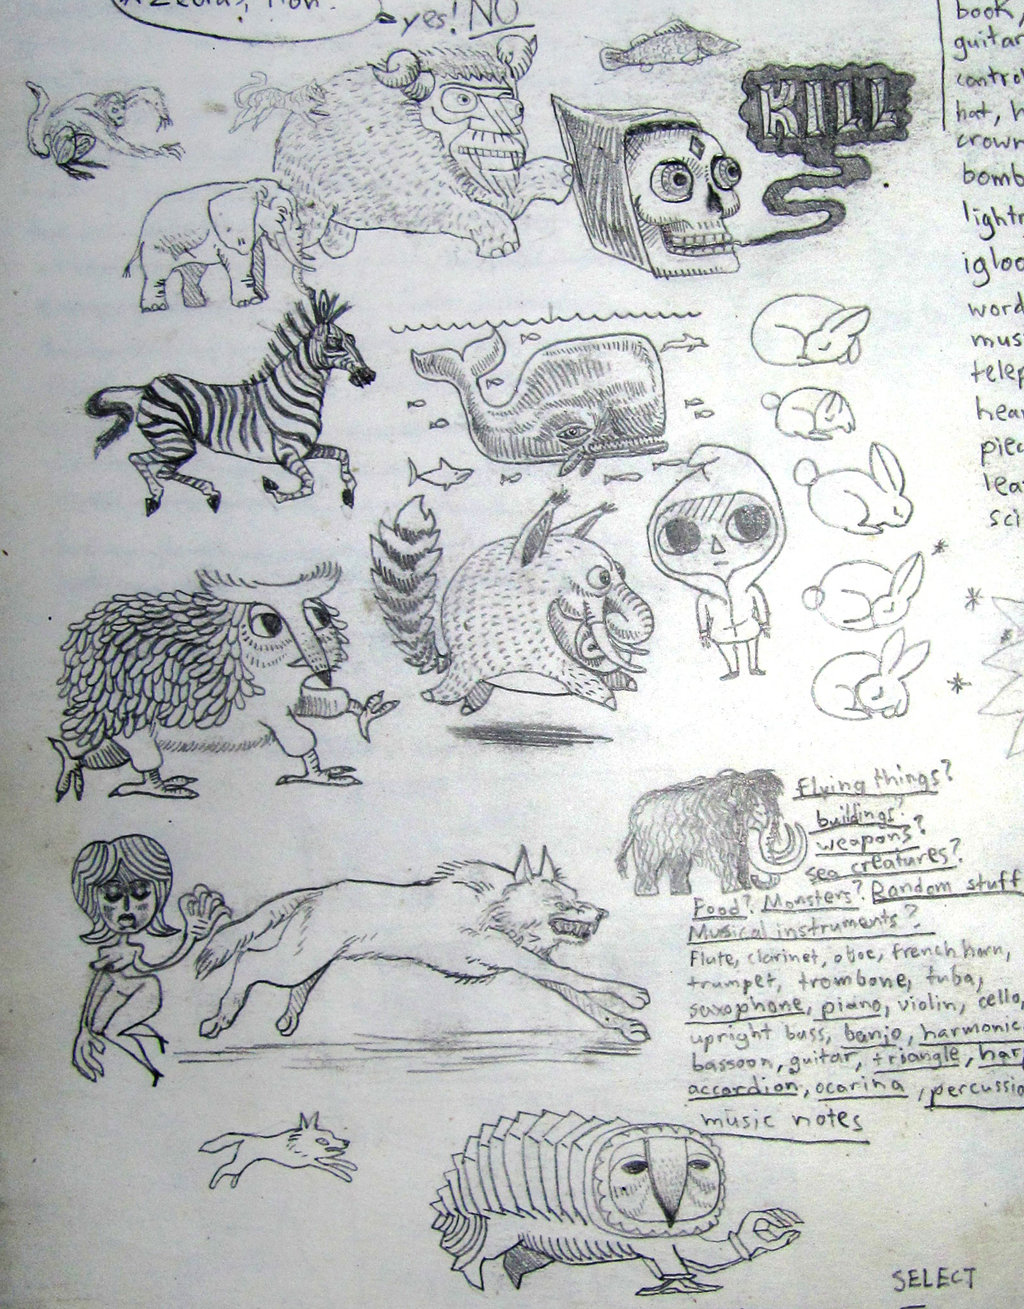 yes! NO
KILL
book,
guitar
control
hat, h
crown
bomb
lightn
igloo
word
mus
telep
hear
piec
leaf
sci
Flying things?
buildings?
weapons?
sea creatures?
Food? Monsters? Random stuff
Musical instruments?
Flute, clarinet, oboe, french horn,
trumpet, trombone, tuba,
saxophone, piano, violin, cello,
upright bass, banjo, harmonic
bassoon, guitar, triangle, har
accordion, ocarina, percussio
music notes
SELECT